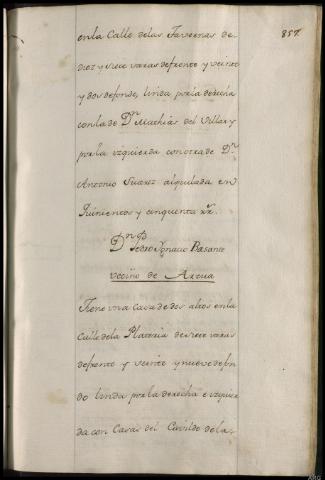 857.
en la Calle de las Tavernas de
diez y siete varas de frente y veinte
y dos de fondo, linda por la derecha
con la de Dn. Mathias del Villar y
por la izquierda con otra de Dn.
Antonio Suarez alquilada en
Quinientos y cinquenta rr.
Dn. Pedro Ygnacio Basante
vecino de Arzua
Tiene una Casa de dos altos en la
Calle de la Plateria de siete varas
de frente y veinte y nueve de fon
do linda por la derecha e izquier
da con Casas del Cavildo de la